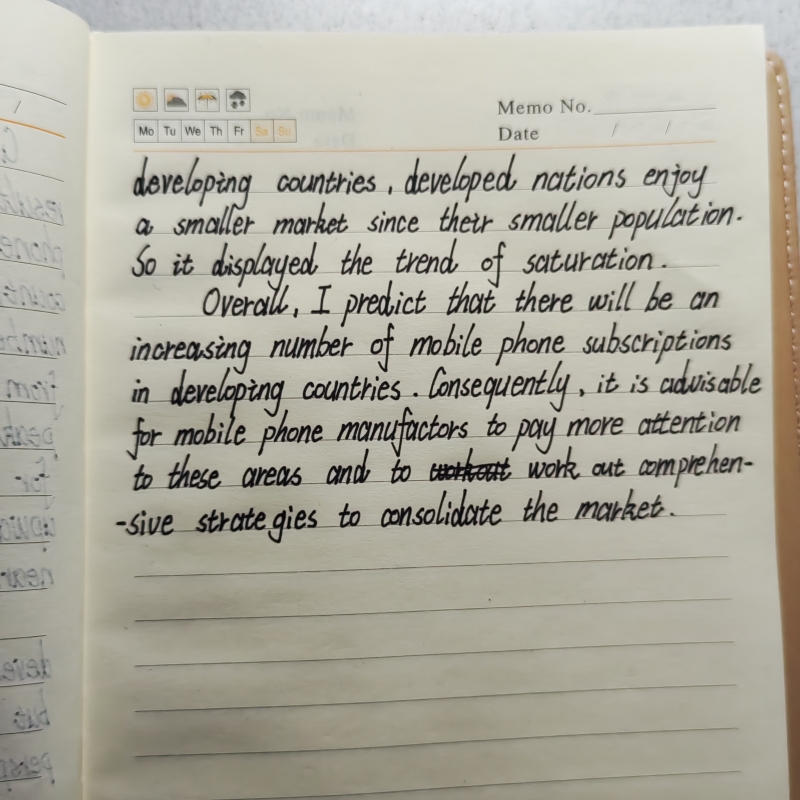 Memo No.
Mo Tu We Th Fr Sa Su
Date / /
developing countries, developed nations enjoy
a smaller market since their smaller population.
So it displayed the trend of saturation.
Overall, I predict that there will be an
increasing number of mobile phone subscriptions
in developing countries. Consequently, it is advisable
for mobile phone manufactors to pay more attention
to these areas and to workout work out comprehen-
-sive strategies to consolidate the market.